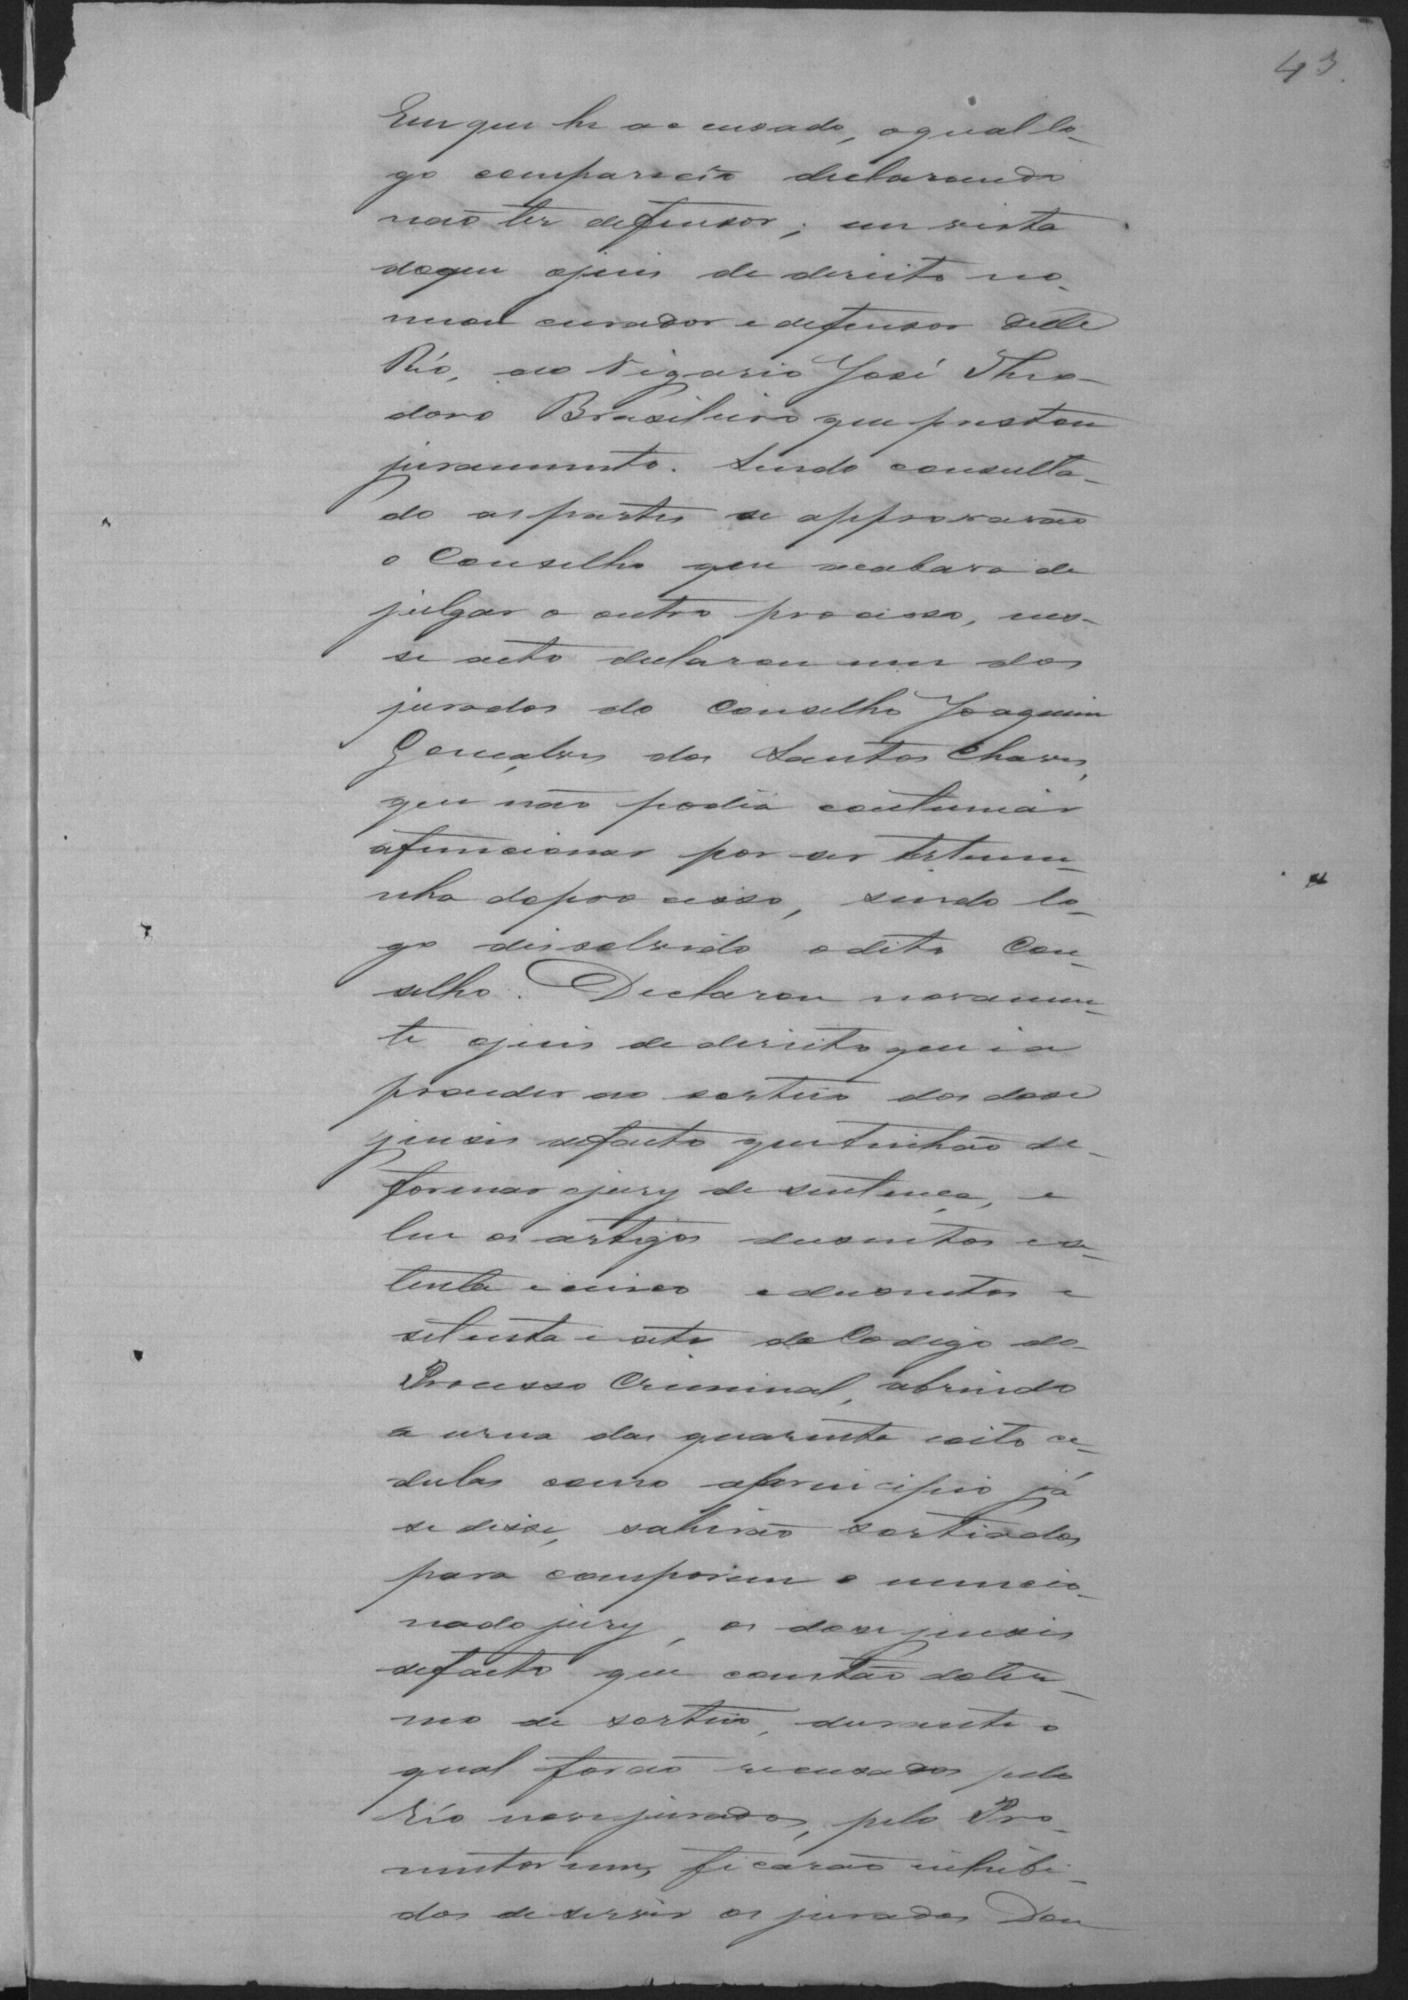 43.
Em que he accusado, o qual lo-
go compareceo declarando
não ter defensor; em vista
do que o juis de direito no-
meou curador e defensor delle
Réo, ao Vigario José Theo-
doro Brasileiro que prestou
juramento. Sendo consulta-
do as partes se approvavão
o Conselho que acabava de
julgar o outro processo, nes-
se acto declarou um dos
jurados do Conselho Joaquim
Gonçalves dos Santos Chaves,
que não podia continuar
a funccionar por ser testemu-
nha do processo, sendo lo-
go dissolvido o dito Con-
selho. Declarou novamen-
te o juis de direito que ia
proceder ao sorteio dos dose
juises de facto que tinhão de
formar o jury de sentença, e
leu os artigos dusentos e se-
tenta e cinco e dusentos e
setenta e sete do Codigo do
Processo Criminal, abrindo
a urna das quarenta e oito ce-
dulas como a principio já
se disse, sahirão sorteados
para comporem o mencio-
nado jury, os dose juises
de facto que constão do ter-
mo de sorteio, durante o
qual forão recusados pelo
Réo nove jurados, pelo Pro-
motor um, ficarão inhibi-
dos de servir os jurados Dou